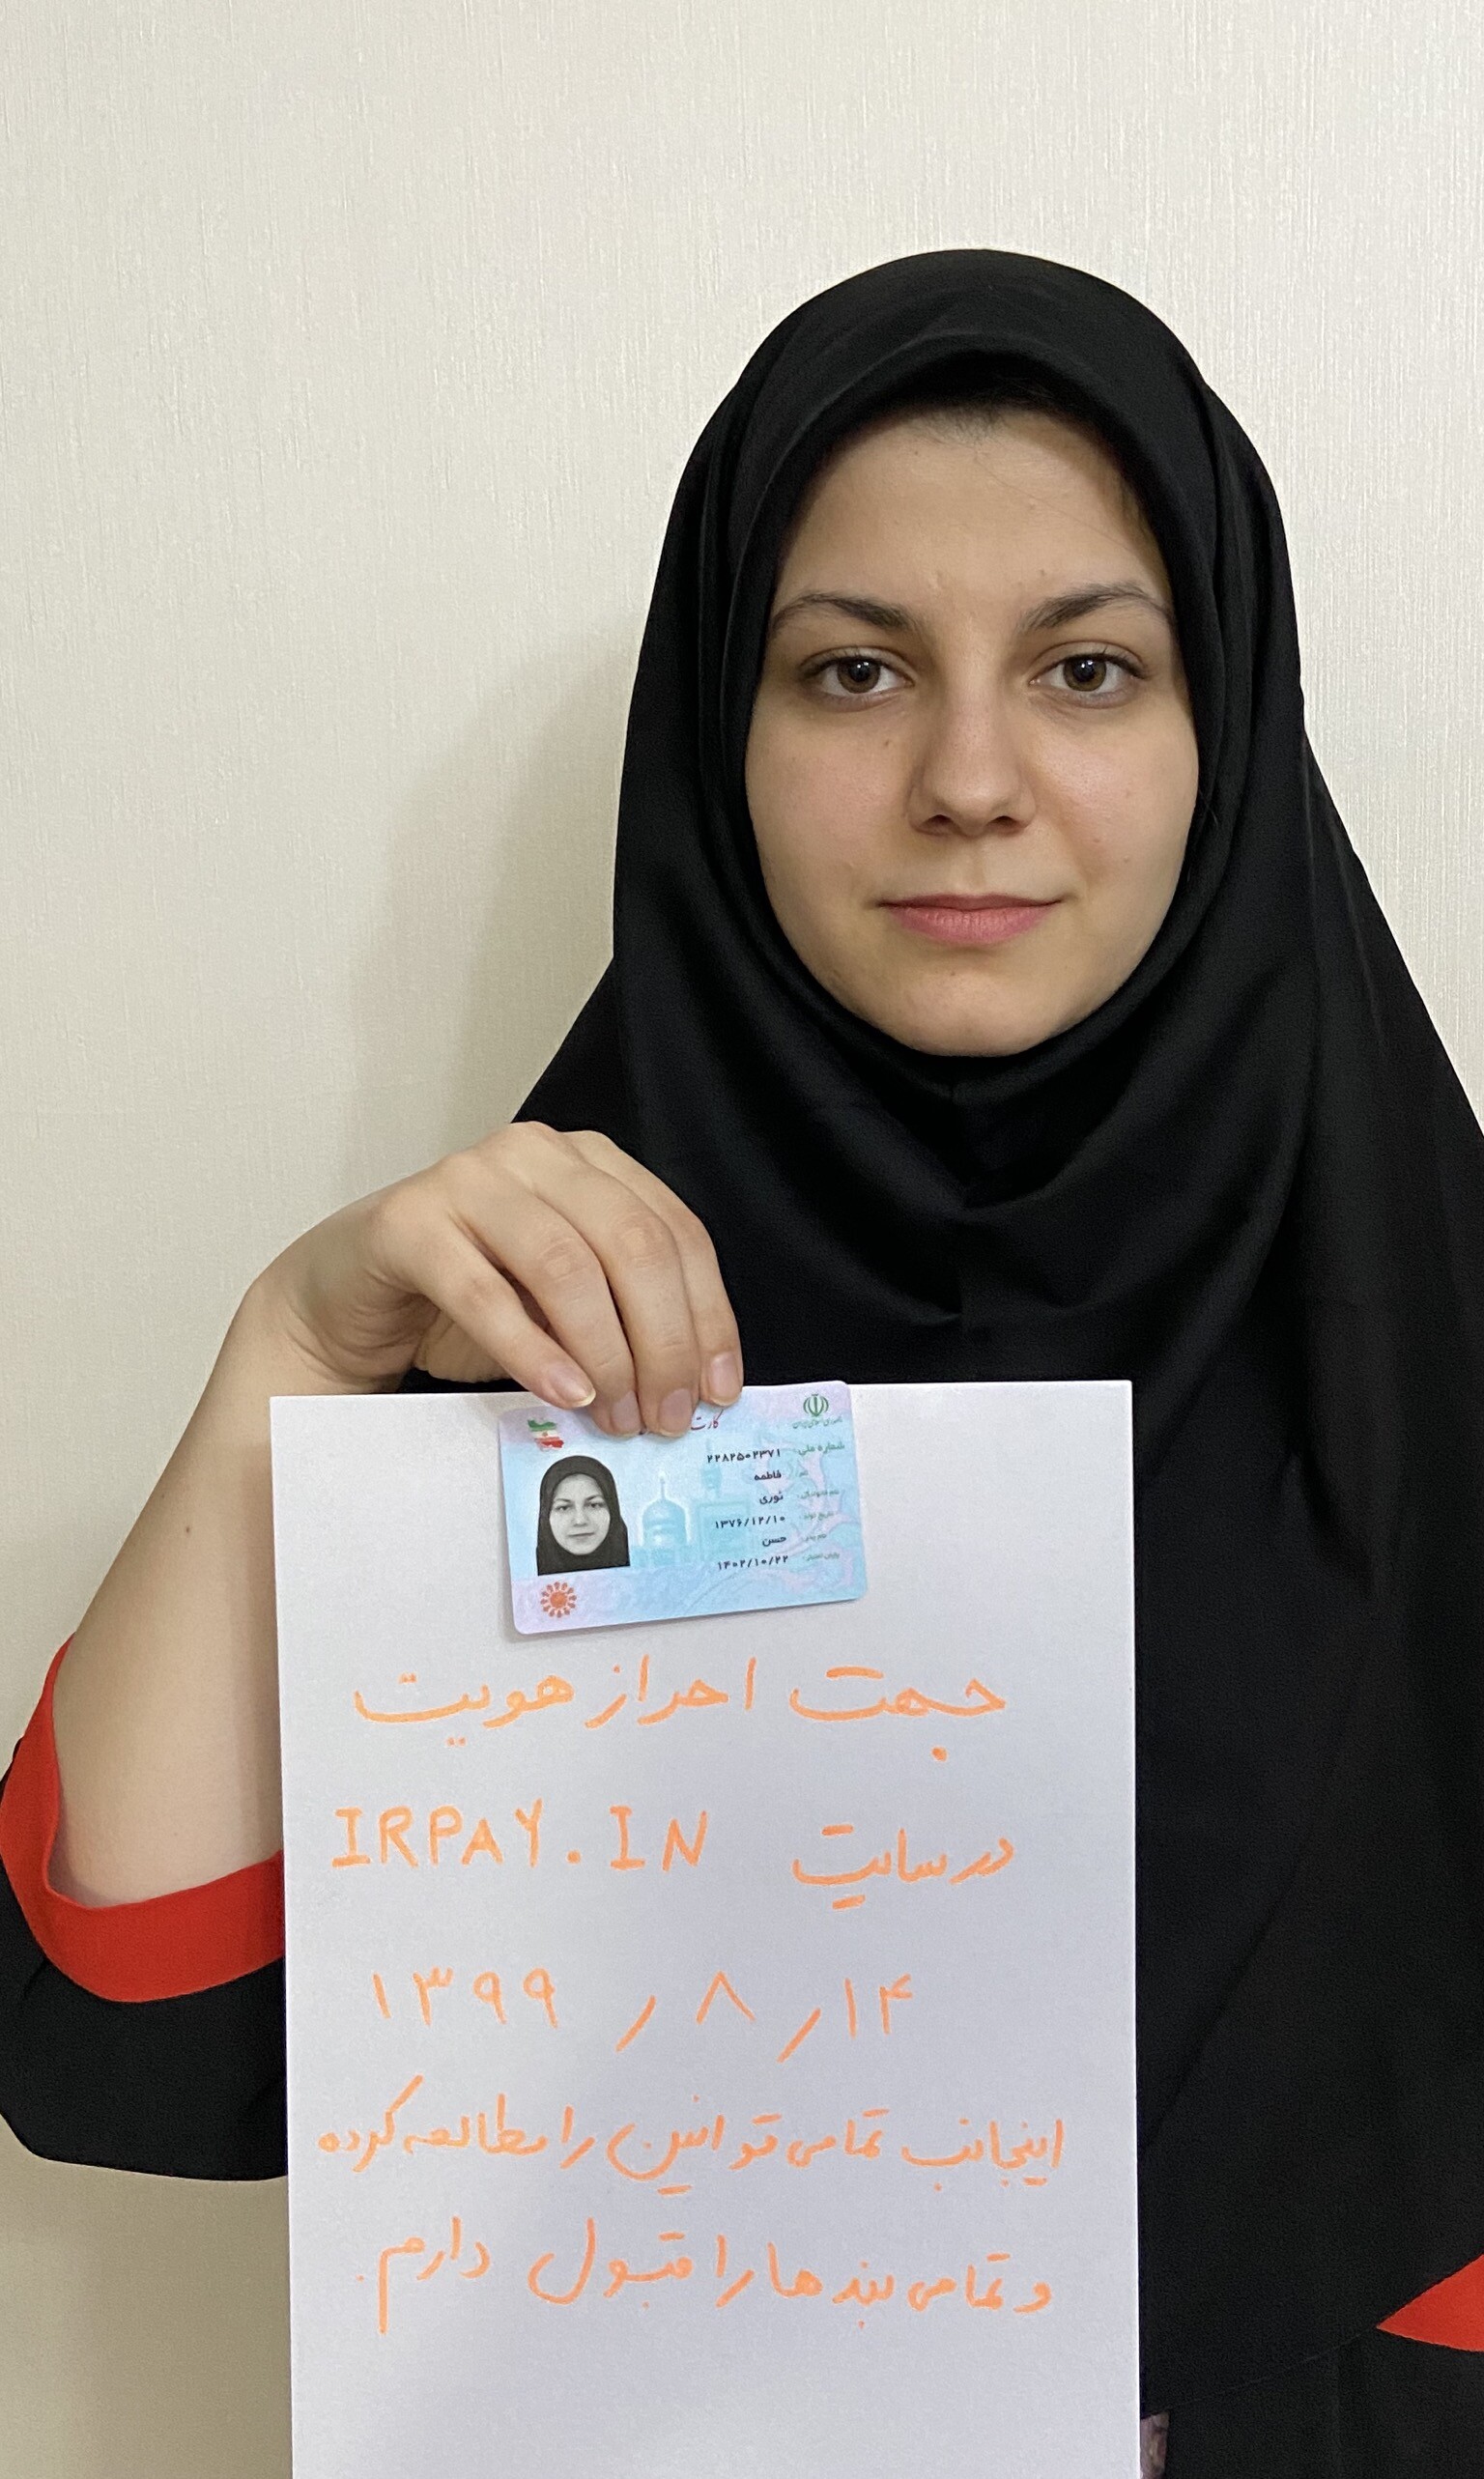 جمهوری اسلامی ایران
کارت
شماره ملی: ۲۲۸۲۵۰۲۳۷۱
نام: فاطمه
نام خانوادگی: نوری
تاریخ تولد: ۱۳۷۶/۱۲/۱۰
نام پدر: حسن
پایان اعتبار: ۱۴۰۲/۱۰/۲۲
جهت احراز هویت
در سایت IRPAY.IN
۱۳۹۹ / ۸ / ۱۴
اینجانب تمامی قوانین را مطالعه کرده
و تمامی بندها را قبول دارم.